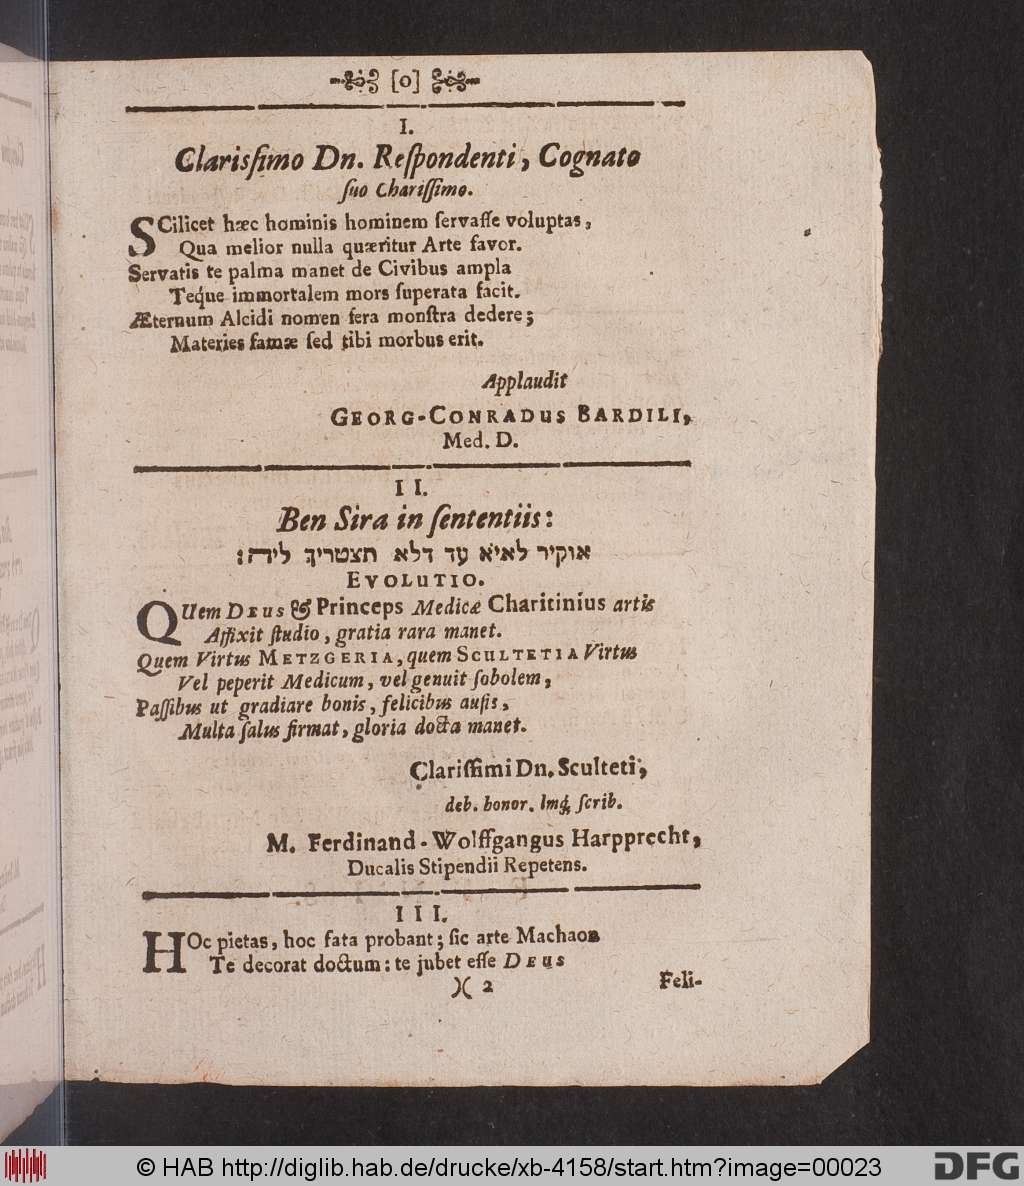 [o]
I.
Clarissimo Dn. Reſpondenti, Cognato
ſuo Chariſſimo.
SCilicet hæc hominis hominem ſervaſſe voluptas,
Qua melior nulla quæritur Arte favor.
Servatis te palma manet de Civibus ampla
Teque immortalem mors ſuperata facit.
Æternum Alcidi nomen fera monſtra dedere;
Materies famæ ſed tibi morbus erit.
Applaudit
GEORG-CONRADUS BARDILI,
Med. D.
II.
Ben Sira in ſententiis:
אוקיר לאיא עד דלא תצטריך ליה:
EVOLUTIO.
QUem DEUS & Princeps Medicæ Charitinius artis
Affixit ſtudio, gratia rara manet.
Quem Virtus METZGERIA, quem SCULTETIA Virtus
Vel peperit Medicum, vel genuit ſobolem,
Paſſibus ut gradiare bonis, felicibus auſis,
Multa ſalus firmat, gloria docta manet.
Clariſſimi Dn. Sculteti,
deb. honor. lmq; ſcrib.
M. Ferdinand-Wolffgangus Harpprecht,
Ducalis Stipendii Repetens.
III.
HOc pietas, hoc fata probant; ſic arte Machaon
Te decorat doctum: te jubet eſſe DEUS
)( 2 Feli-
© HAB http://diglib.hab.de/drucke/xb-4158/start.htm?image=00023
DFG